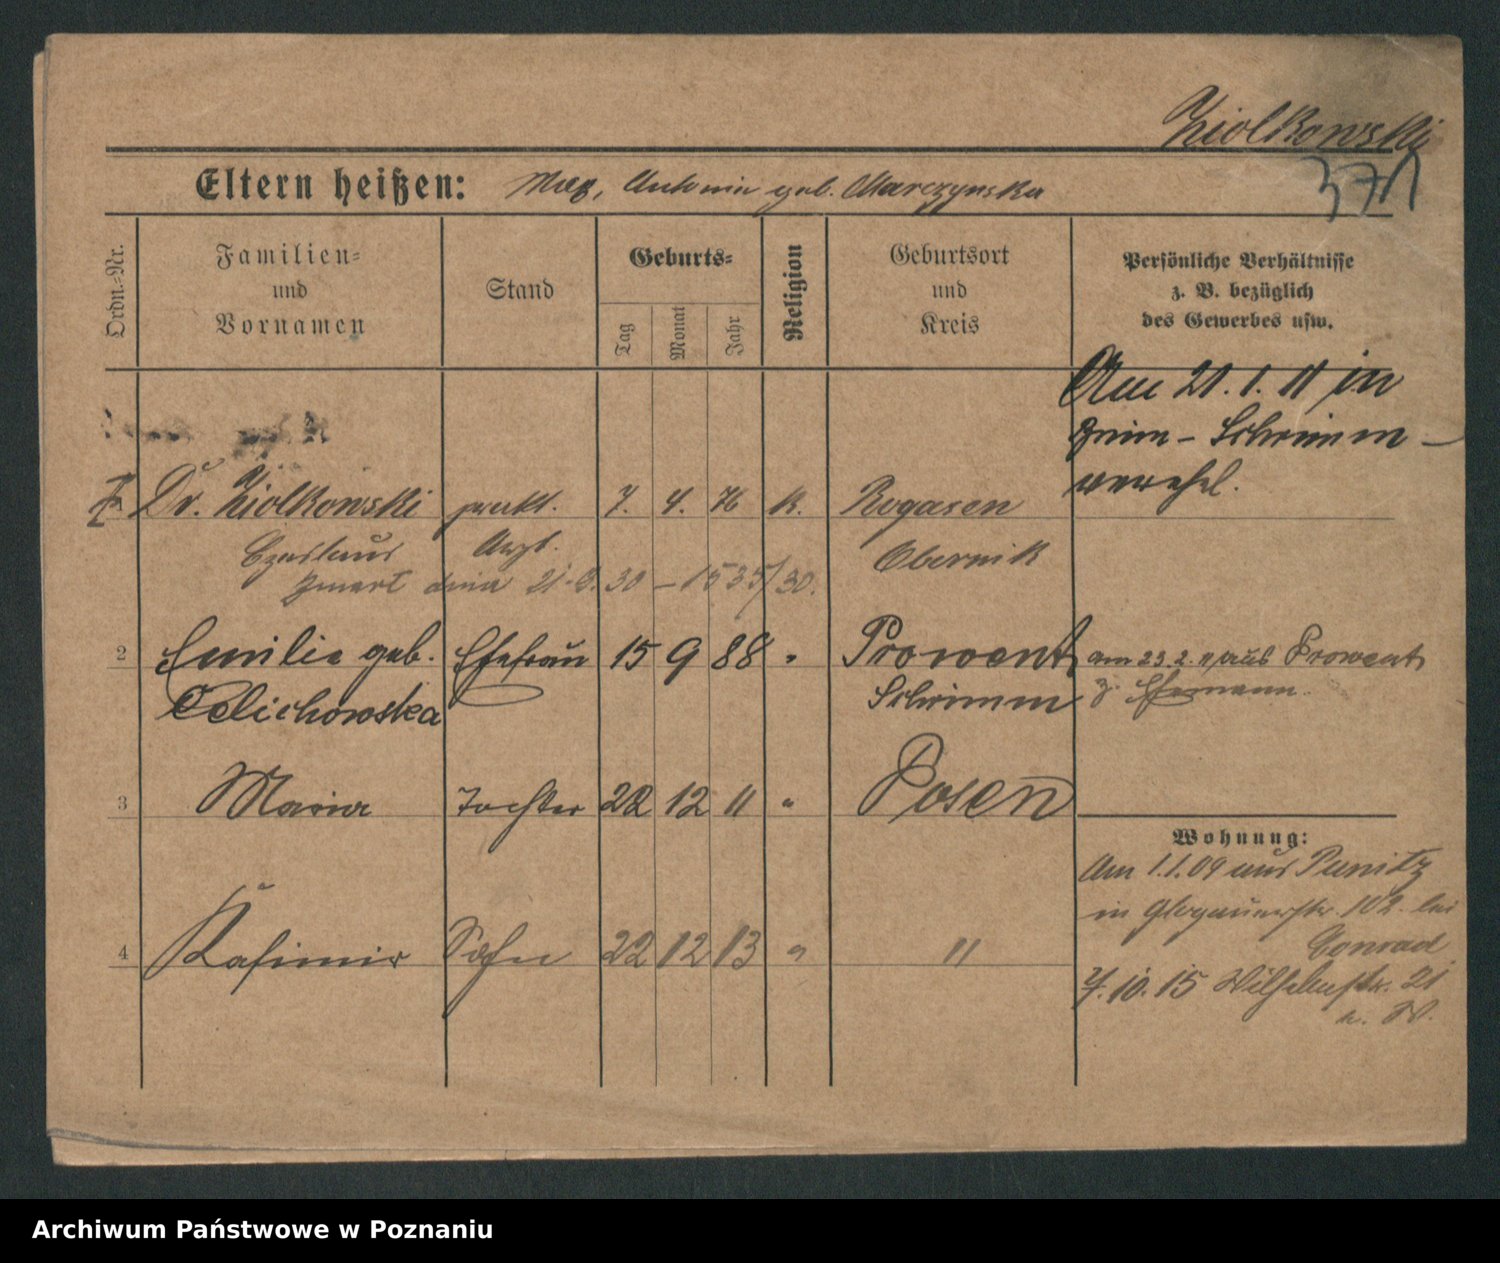 Ziolkowski
371
Eltern heißen: Max, Antonie geb. Marczynska
Ordn.-Nr.
Familien- und Vornamen
Stand
Geburts-
Tag
Monat
Jahr
Religion
Geburtsort und Kreis
Persönliche Verhältnisse
z. B. bezüglich
des Gewerbes usw.
Am 21. 1. 11 in
Bnin - Schrimm -
verehel.
Dr. Ziolkowski prakt. 7. 4. 76 k. Rogasen
Czeslaus Arzt. Obernik
Zmarł dnia 21.9.30 - 1535/30.
2 Emilie geb. Ehefrau 15 9 88 " Prowent am 23.2. 11 aus Prowent
Celichowska Schrimm z. Ehemann.
3 Maria Tochter 22 12 11 " Posen
Wohnung:
Am 1.1.09 aus Punitz
in Glogauerstr. 102 bei
Conrad
4 Kasimir Sohn 22 12 13 " "
7. 10. 15 Wilhelmstr. 21
Archiwum Państwowe w Poznaniu